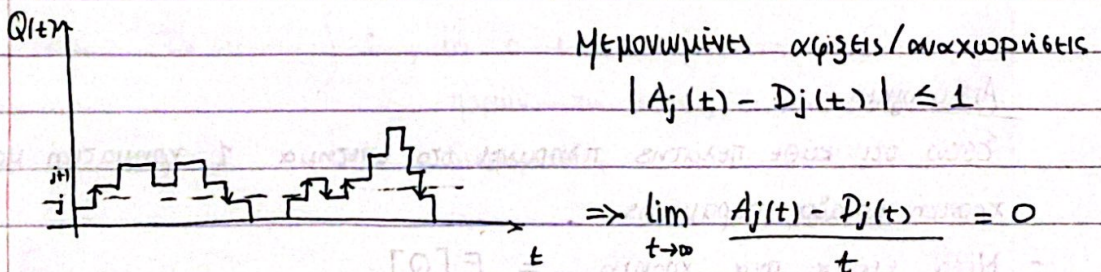 Q(t)
Μεμονωμένες αφίξεις/αναχωρήσεις
| Aj(t) - Dj(t) | ≤ 1
j+1
j
t
=> lim t→∞ Aj(t) - Dj(t) / t = 0